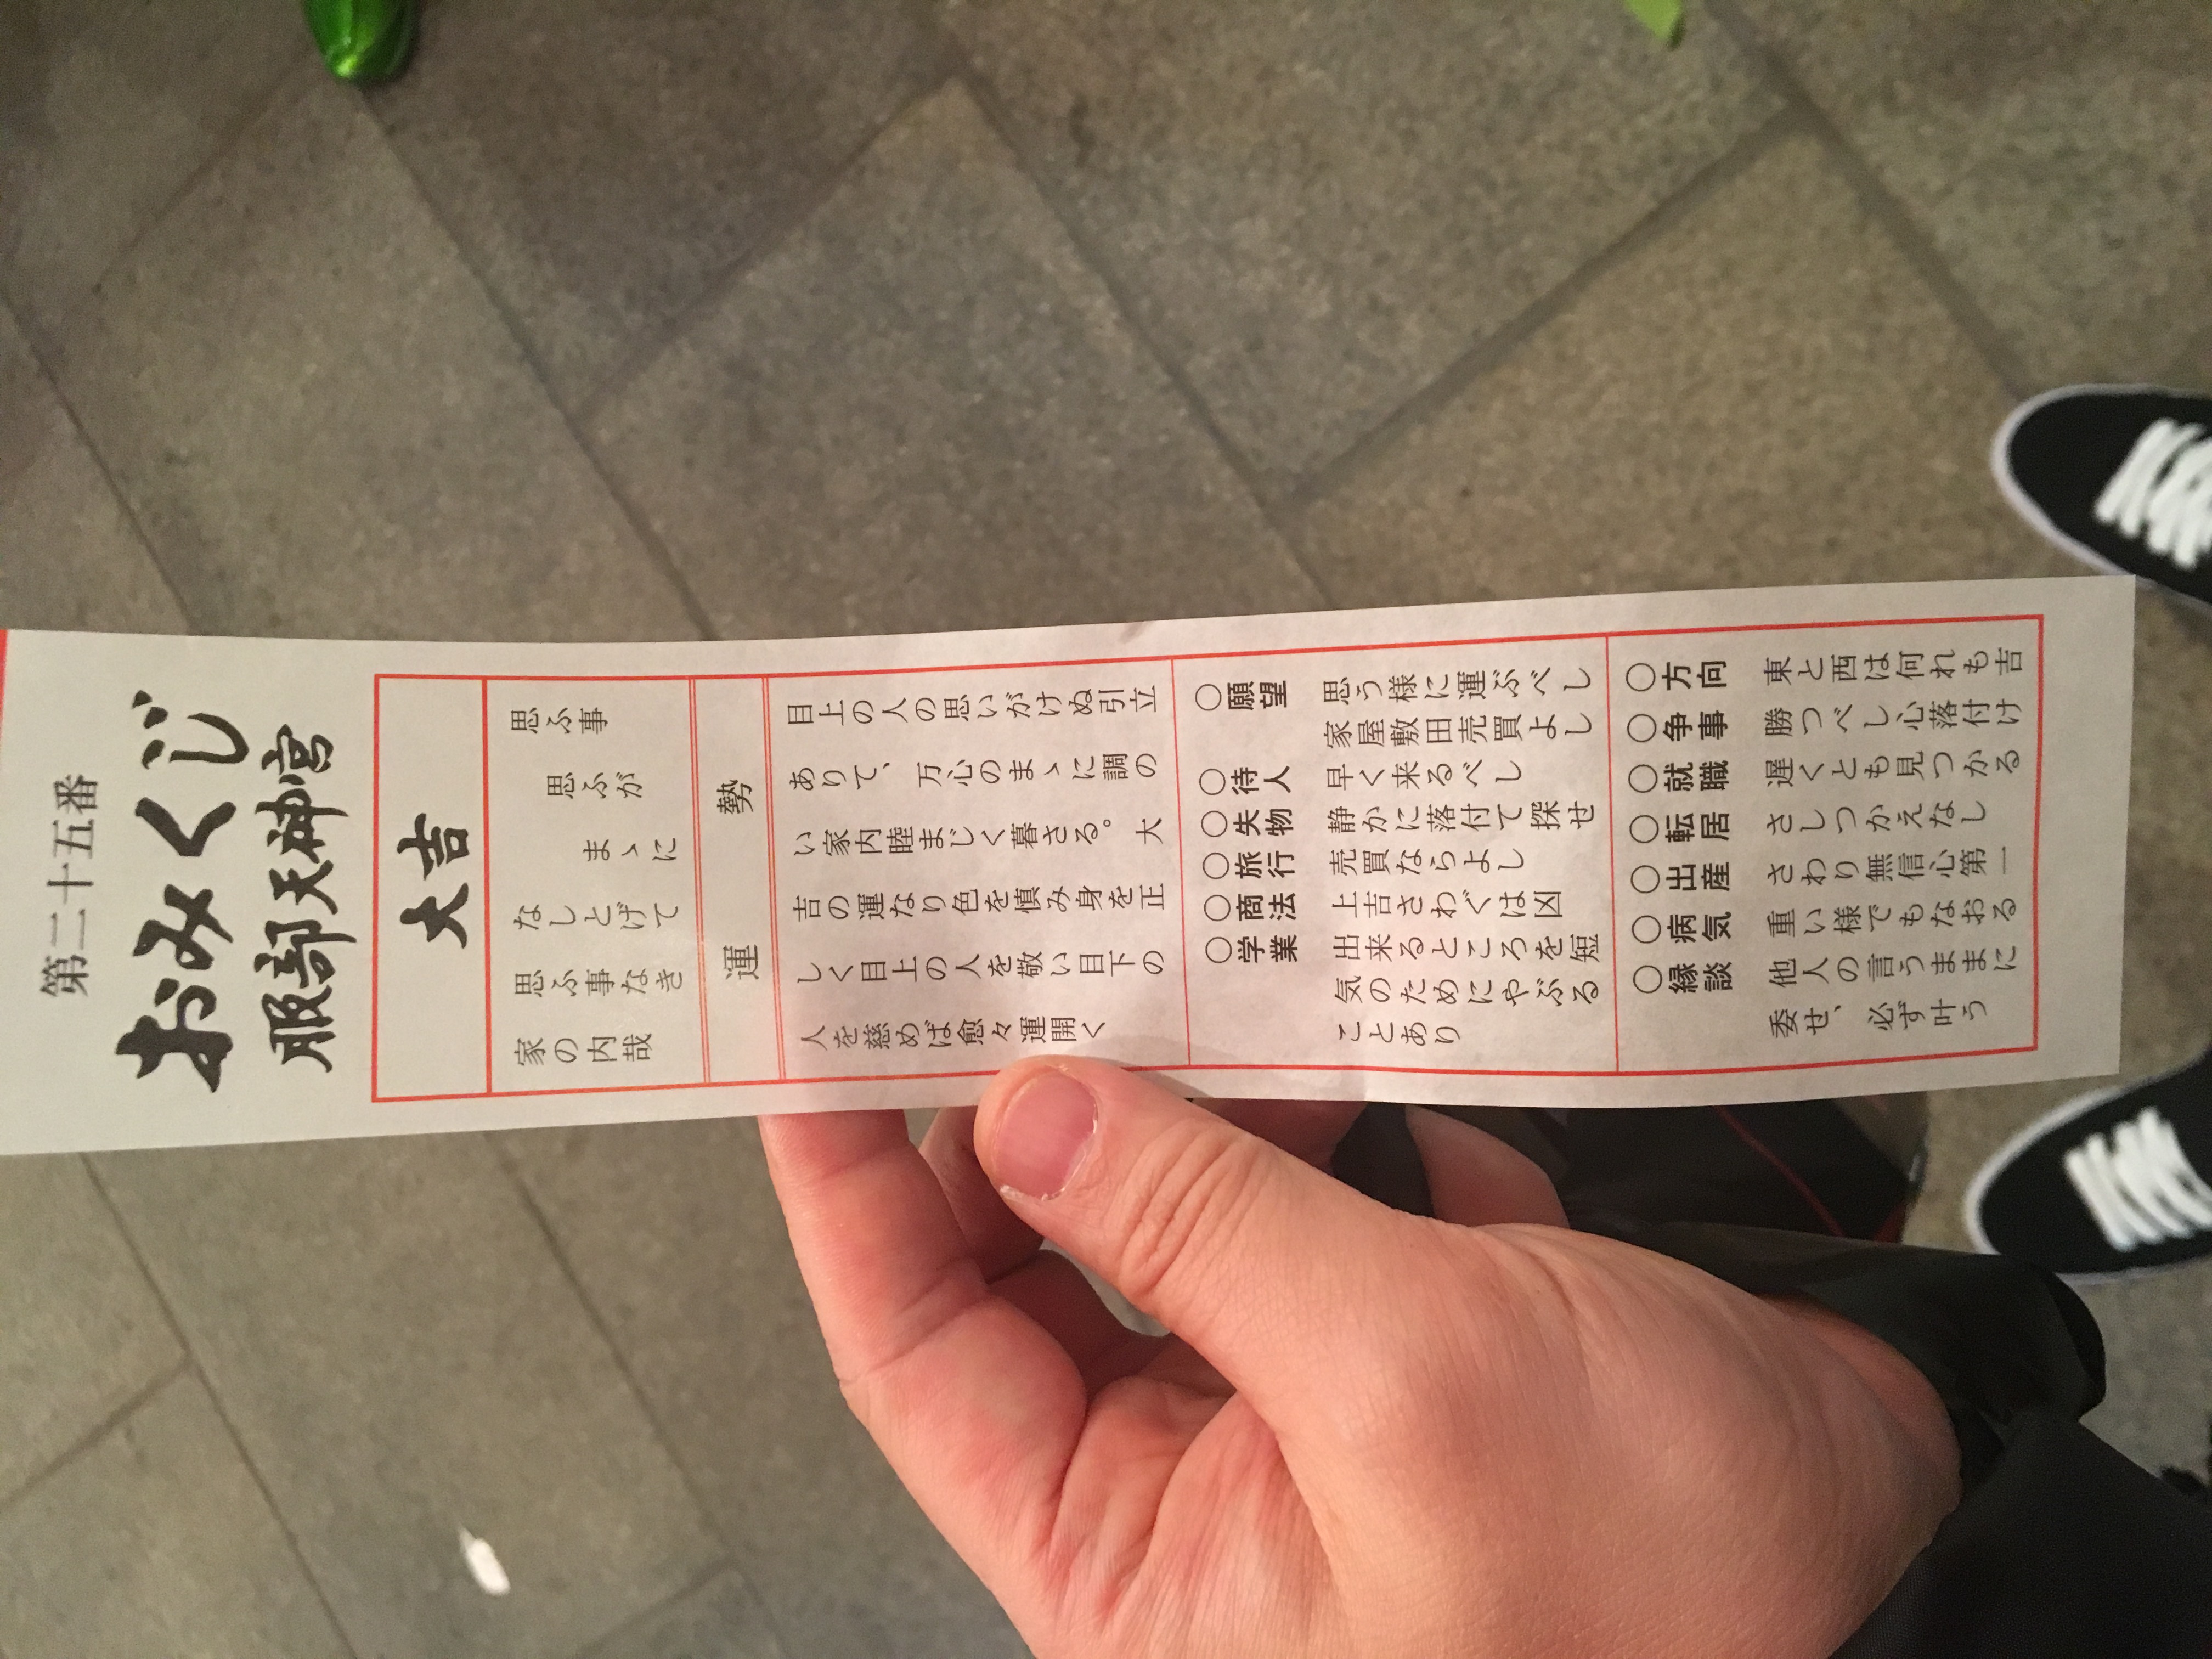 第二十五番
おみくじ
服部天神宮
大吉
思ふ事
思ふが
まゝに
なしとげて
思ふ事なき
家の内哉
運勢
目上の人の思いがけぬ引立
ありて、万心のまゝに調の
い家内睦まじく暮さる。大
吉の運なり色を慎み身を正
しく目上の人を敬い目下の
人を慈めば愈々運開く
〇願望 思う様に運ぶべし
家屋敷田売買よし
〇待人 早く来るべし
〇失物 静かに落付て探せ
〇旅行 売買ならよし
〇商法 上吉さわぐは凶
〇学業 出来るところを短
気のためにやぶる
ことあり
〇方向 東と西は何れも吉
〇争事 勝つべし心落付け
〇就職 遅くとも見つかる
〇転居 さしつかえなし
〇出産 さわり無信心第一
〇病気 重い様でもなおる
〇縁談 他人の言うままに
委せ、必ず叶う